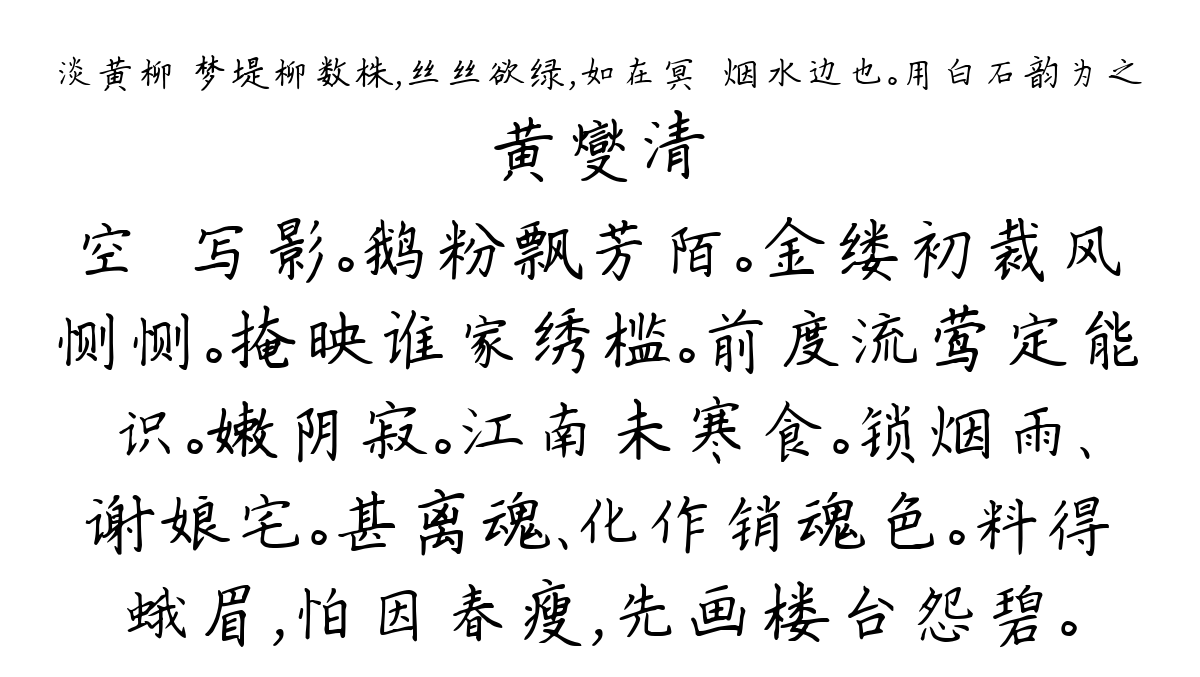 淡黄柳 梦堤柳数株,丝丝欲绿,如在冥 烟水边也。用白石韵为之
黄燮清
空 写影。鹅粉飘芳陌。金缕初裁风
恻恻。掩映谁家绣槛。前度流莺定能
识。嫩阴寂。江南未寒食。锁烟雨、
谢娘宅。甚离魂、化作销魂色。料得
蛾眉,怕因春瘦,先画楼台怨碧。